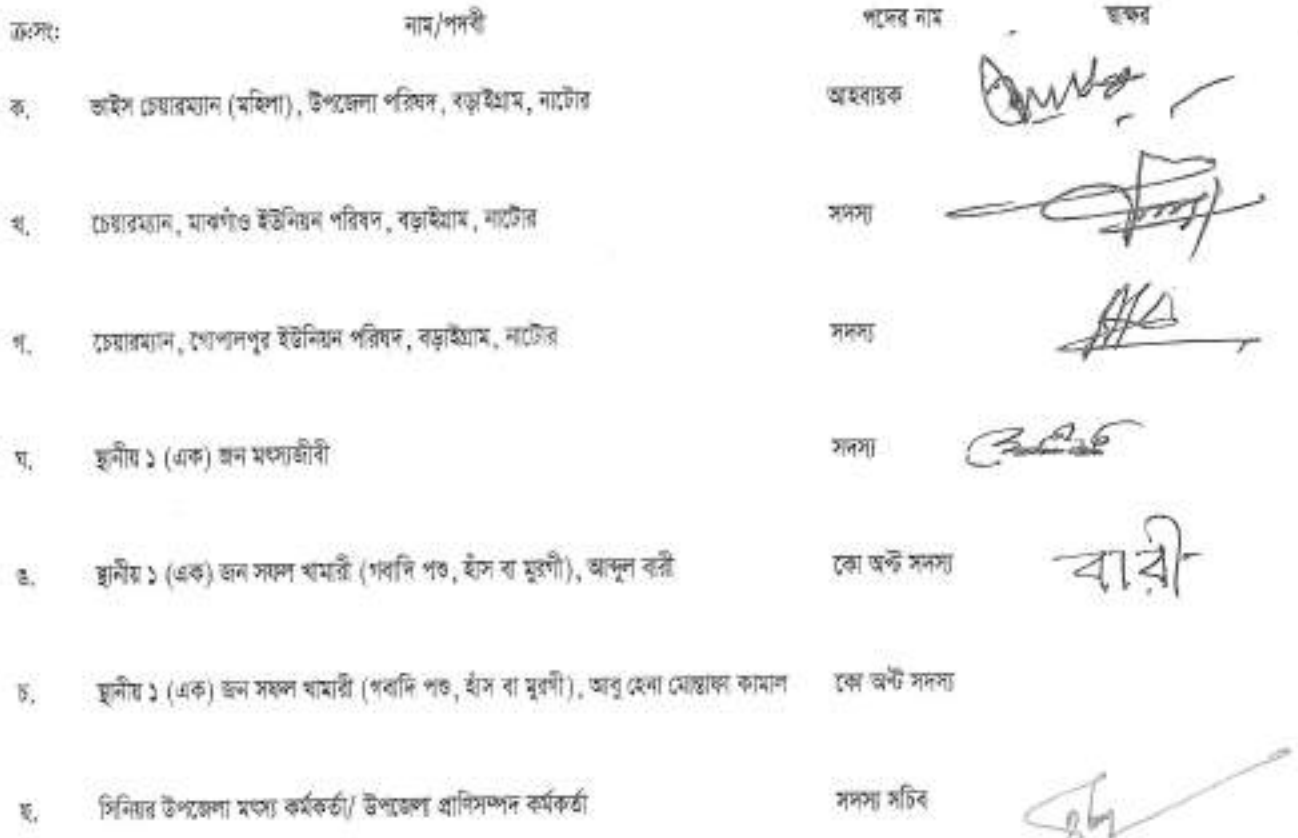 ক্র:সং: নাম/পদবী পদের নাম স্বাক্ষর
ক. ভাইস চেয়ারম্যান (মহিলা), উপজেলা পরিষদ, বড়াইগ্রাম, নাটোর আহবায়ক
খ. চেয়ারম্যান, মাঝগাঁও ইউনিয়ন পরিষদ, বড়াইগ্রাম, নাটোর সদস্য
গ. চেয়ারম্যান, গোপালপুর ইউনিয়ন পরিষদ, বড়াইগ্রাম, নাটোর সদস্য
ঘ. স্থানীয় ১ (এক) জন মৎস্যজীবী সদস্য
ঙ. স্থানীয় ১ (এক) জন সফল খামারী (গবাদি পশু, হাঁস বা মুরগী), আব্দুল বারী কো অপ্ট সদস্য বারী
চ. স্থানীয় ১ (এক) জন সফল খামারী (গবাদি পশু, হাঁস বা মুরগী), আবু হেনা মোস্তাফা কামাল কো অপ্ট সদস্য
ছ. সিনিয়র উপজেলা মৎস্য কর্মকর্তা/ উপজেলা প্রাণিসম্পদ কর্মকর্তা সদস্য সচিব